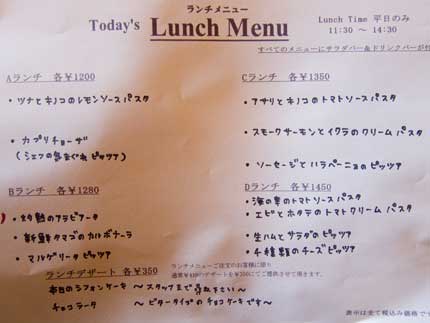 ランチメニュー
Today's Lunch Menu
Lunch Time 平日のみ
11:30 ～ 14:30
すべてのメニューにサラダバー＆ドリンクバーが付
Aランチ 各¥1200
・ツナとキノコのレモンソースパスタ
・カプリチョーザ
(シェフの気まぐれピッツァ)
Bランチ 各¥1280
・灼熱のアラビアータ
・新鮮タマゴのカルボナーラ
・マルゲリータピッツァ
Cランチ 各¥1350
・アサリとキノコのトマトソースパスタ
・スモークサーモンとイクラのクリームパスタ
・ソーセージとハラペーニョのピッツァ
Dランチ 各¥1450
・海の幸のトマトソースパスタ
・エビとホタテのトマトクリームパスタ
・生ハムとサラダのピッツァ
・4種類のチーズピッツァ
ランチデザート 各¥350
ランチメニューご注文のお客様に限り
通常¥410のデザートを¥350にてご提供させて頂きます。
本日のシフォンケーキ ～スタッフまでお尋ね下さい～
チョコラータ ～ビタータイプのチョコケーキです～
表示は全て税込み価格です